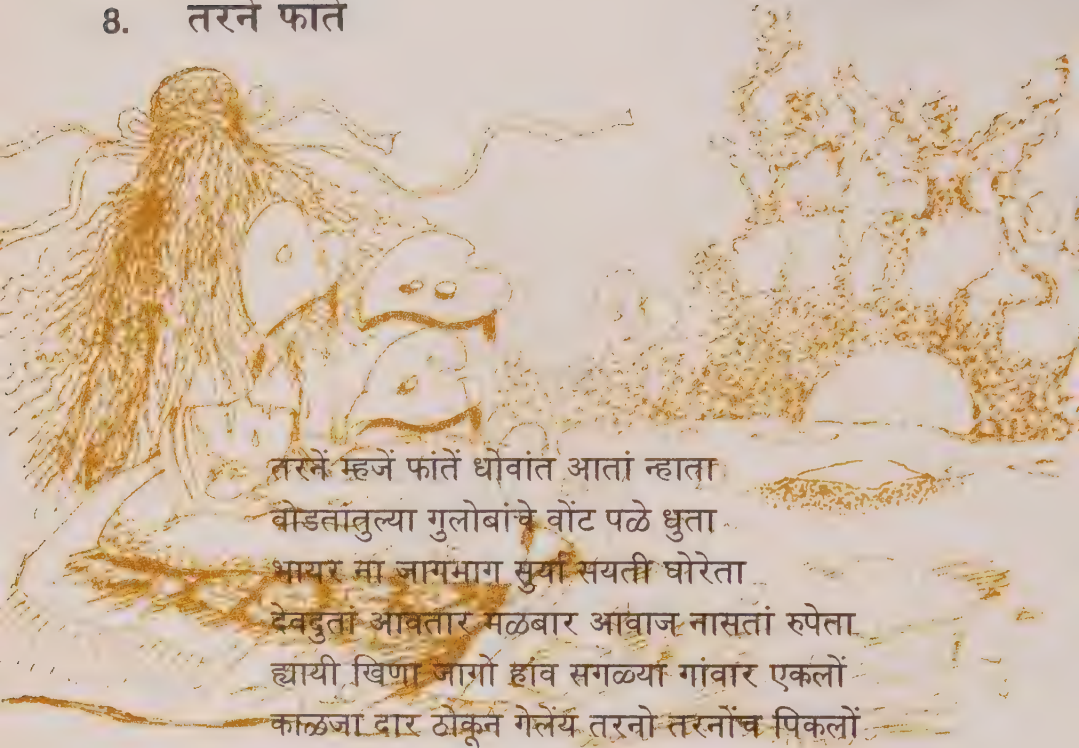 8. तरनें फांतें
तरनें म्हजें फांतें धोवांत आतां न्हाता
वोडतांतुल्या गुलोबांचे वोंट पळे धुता
भायर ना जागमाग सुर्या सयती घोरेता
देवदुतां आवतार मळबार आवाज नासतां रुपेता
ह्यायी खिणा जागो हांव सगळ्या गांवार एकलों
काळजा दार ठोकून गेलेंय तरनो तरनोंच पिकलों